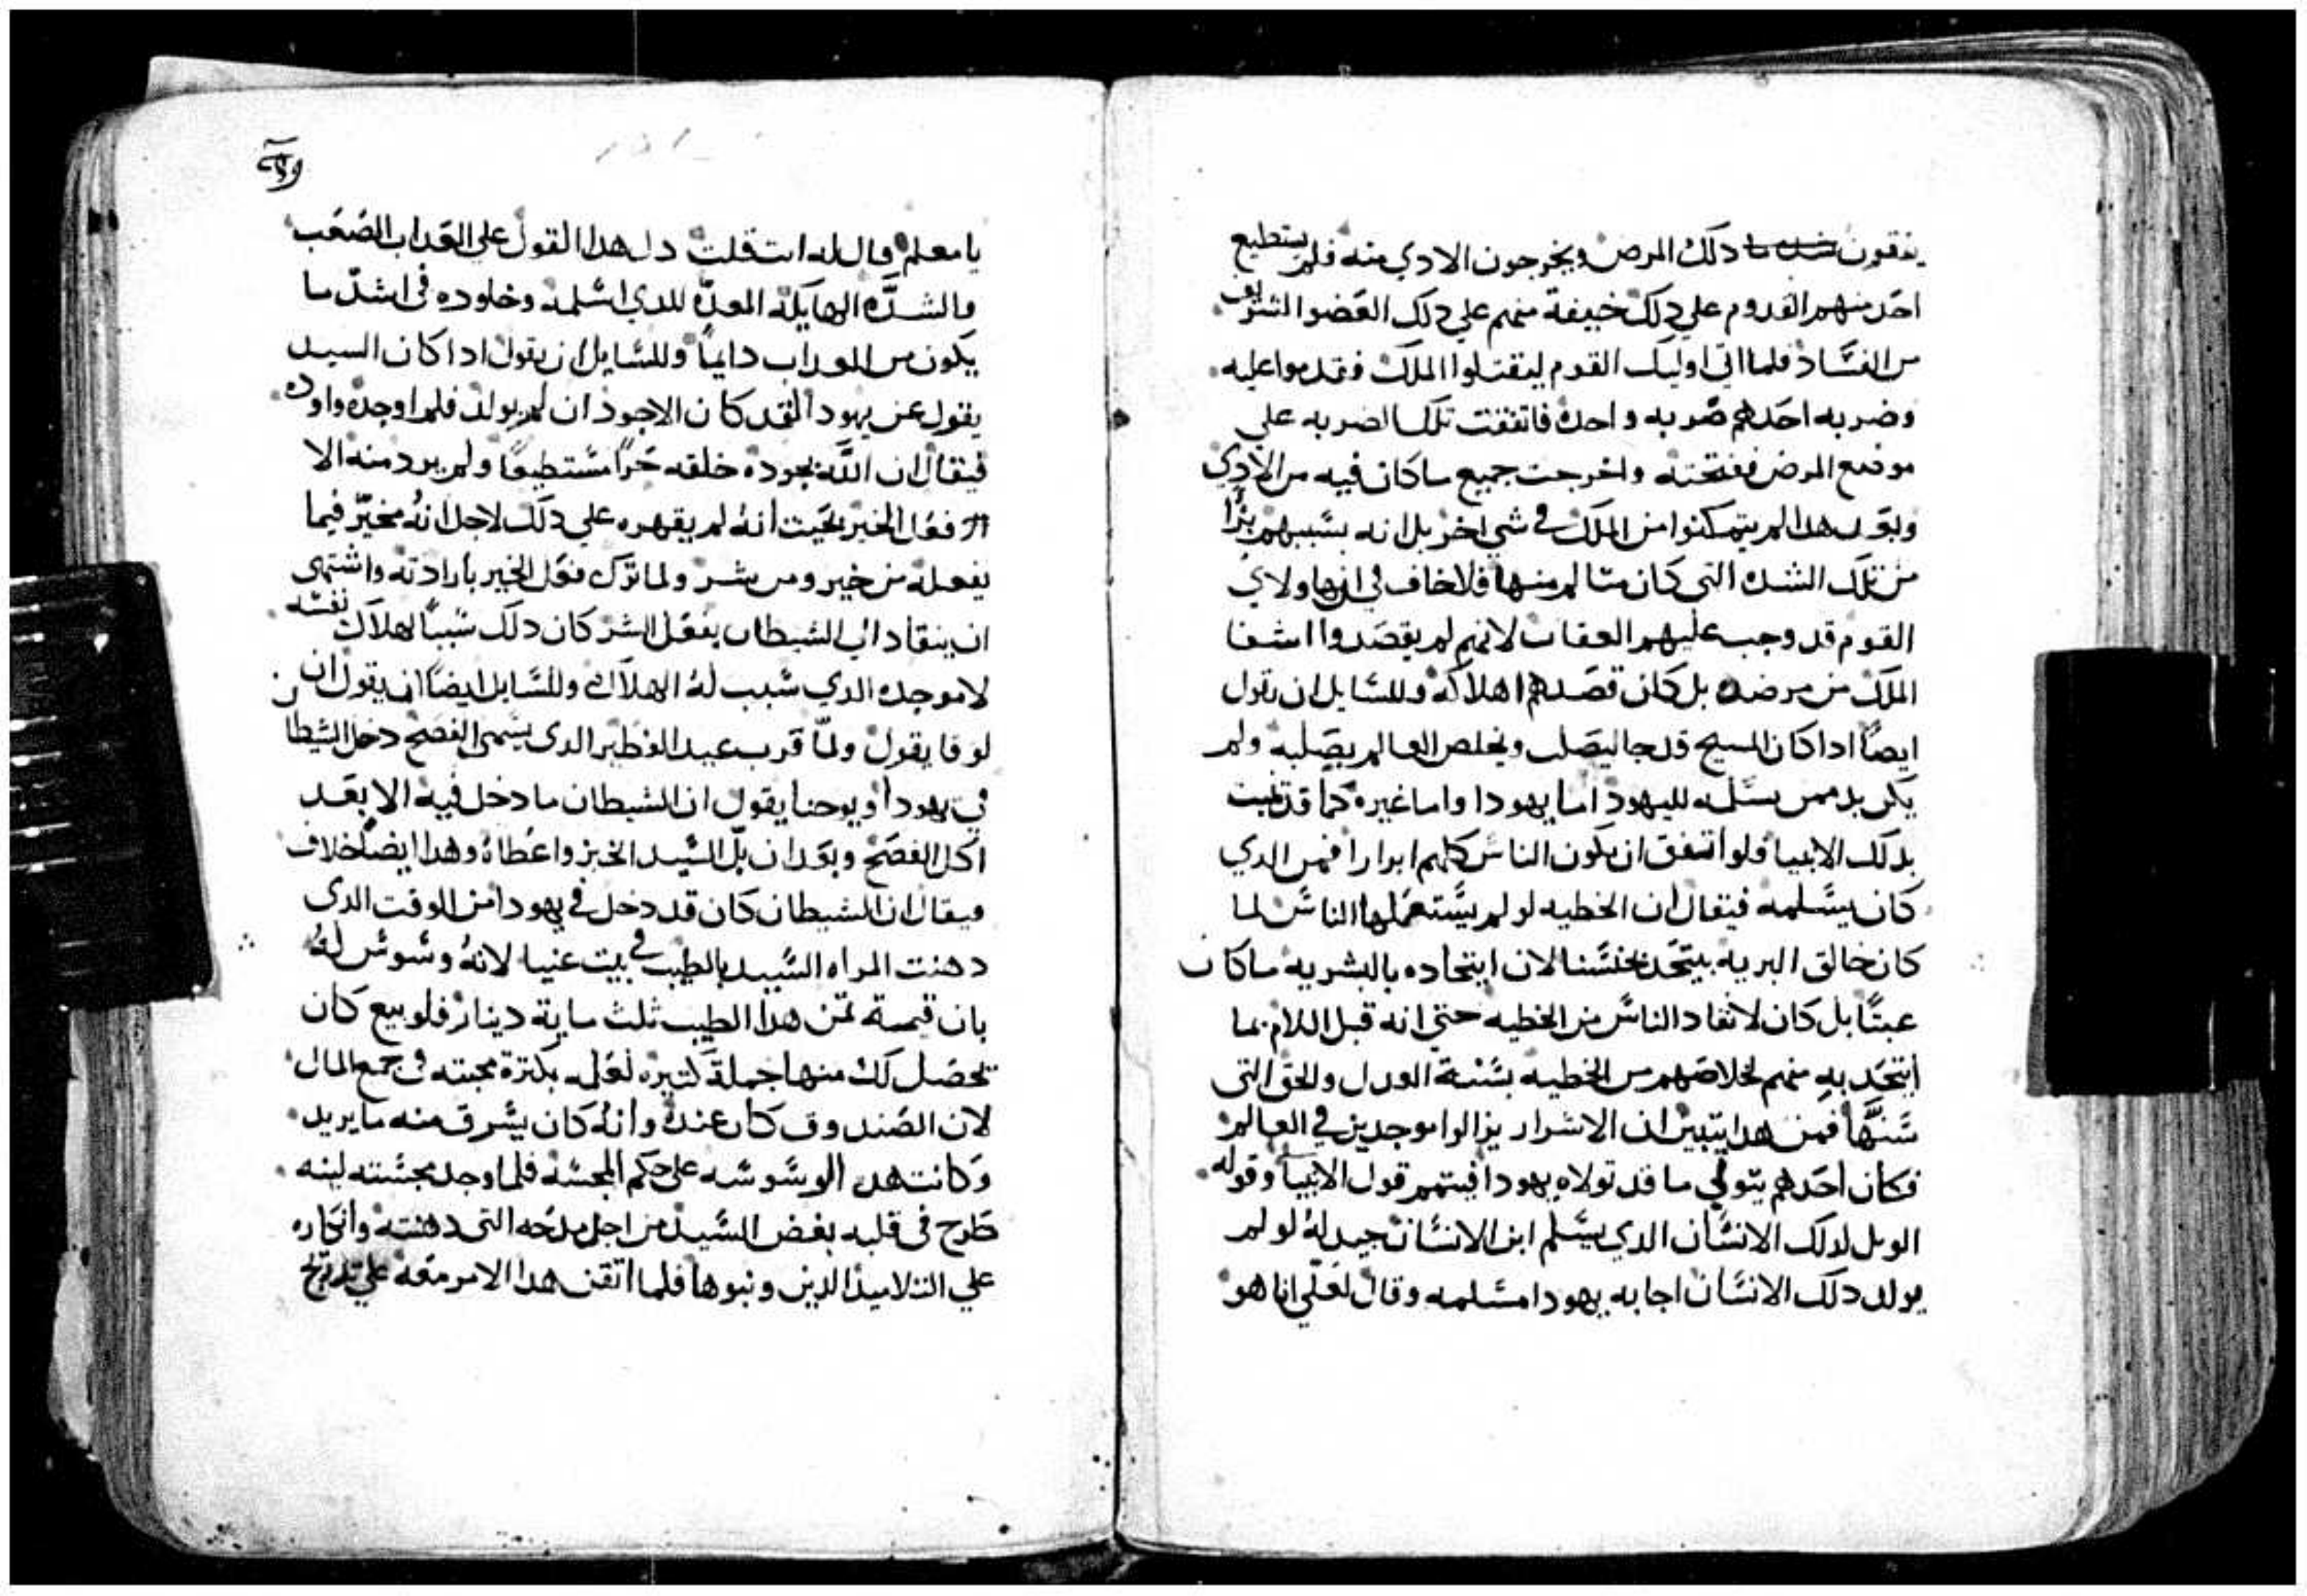 ينقون دلك المرض ويخرجون الادي منه فلم يستطيع
احد منهم القدوم علي دلك خيفة منهم علي دلك العضو الشريف
من الفساد فلما اتي اوليك القوم ليقتلوا الملك فقدموا عليه
وضربه احدهم ضربه واحده فاتفقت تلك الضربه علي
موضع المرض ففتحته واخرجت جميع ما كان فيه من الادي
وبعد هدا لم يتمكنوا من الملك في شي اخر بل انه بسببهم برا
من تلك الشده التي كان متالم منها فلا خاف في ان هاولاي
القوم قد وجب عليهم العقاب لانهم لم يقصدوا اشفا
الملك من مرضه بل كان قصدهم اهلاكه وللسايل ان يقول
ايضا ادا كان المسيح قد جا ليصلب ويخلص العالم بصلبه ولم
يكن بد ممن يسلمه لليهود اما يهودا واما غيره كما قد تنبت
بدلك الانبيا فلو اتفق ان يكون الناس كلهم ابرارا فمن الدي
كان يسلمه فيقال ان الخطيه لو لم يستعملها الناس لما
كان خالق البريه يتحد بجنسنا لان ايتحاده بالبشريه ما كان
عبتا بل كان لانقاد الناس من الخطيه حتي انه قبل الالام بما
ايتحد به منهم لخلاصهم من الخطيه بسنة العدل والحق التي
سنها فمن هدا يتبين ان الاشرار يزالوا موجدين في العالم
فكان احدهم يتولي ما قد تولاه يهودا فيتمم قول الانبيا وقوله
الويل لدلك الانسان الدي يسلم ابن الانسان جيد له لو لم
يولد دلك الانسان اجابه يهودا مسلمه وقال لعلي انا هو
يا معلم قال له انت قلت دل هدا القول علي العداب الصعب
والشده الهايله المعده للدي اسلمه وخلوده في اشد ما
يكون من العداب دايما وللسايل ان يقول ادا كان السيد
يقول عن يهودا لقد كان الاجود ان لم يولد فلم اوجده
فيقال ان الله بجوده خلقه حرا مستطيعا ولم يرد منه الا
فعل الخير بحيت انه لم يقهره علي دلك لاجل انه مخير فيما
يفعله من خير ومن شر ولما ترك فعل الخير بارادته واشتهي
ان ينقاد الي الشيطان بفعل الشر كان دلك سببا لهلاك نفسه
لا موجده الدي سبب له الهلاك وللسايل ايضا ان يقول ان
لوقا يقول ولما قرب عيد الفطير الدي يسمي الفصح دخل الشيطان
في يهودا ويوحنا يقول ان الشيطان ما دخل فيه الا بعد
اكل الفصح وبعد ان بل السيد الخبز واعطاه وهدا ايضا خلاف
فيقال ان الشيطان كان قد دخل في يهودا من الوقت الدي
دهنت المراه السيد بالطيب في بيت عنيا لانه وسوس له
بان قيمة تمن هدا الطيب ثلث ماية دينار فلو بيع كان
تحصل لك منها جملة كتيره لعلمه بكترة محبته في جمع المال
لان الصندوق كان عنده وانه كان يسرق منه ما يريد
وكانت هده الوسوسه علي حكم المجسه فلما وجد مجسته لينه
طرح في قلبه بغض السيد من اجل مدحه التي دهنته وانكاره
علي التلاميد الدين ونبوها فلما اتقن هدا الامر معه علي تدريج